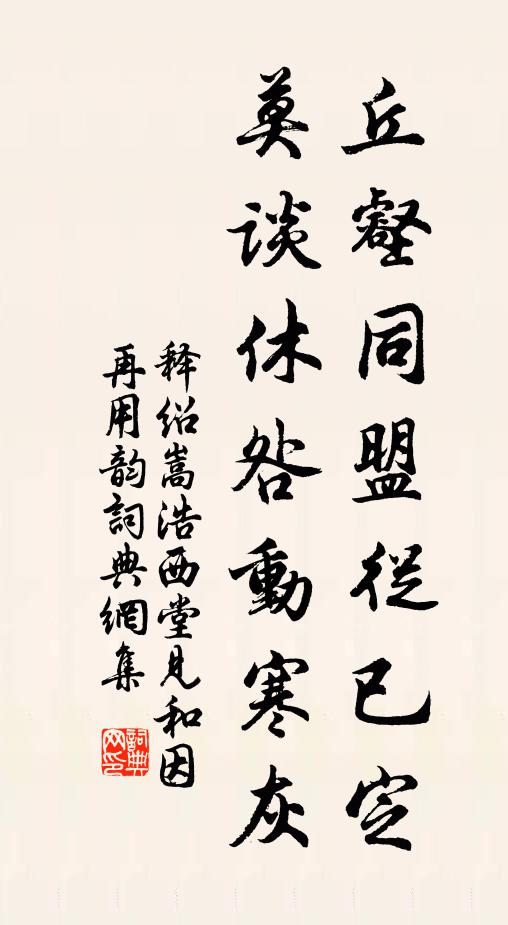 丘壑同盟從已定
莫談休咎動寒灰
释绍嵩浩西堂見和因
再用韵詞典網集
詞典
网印